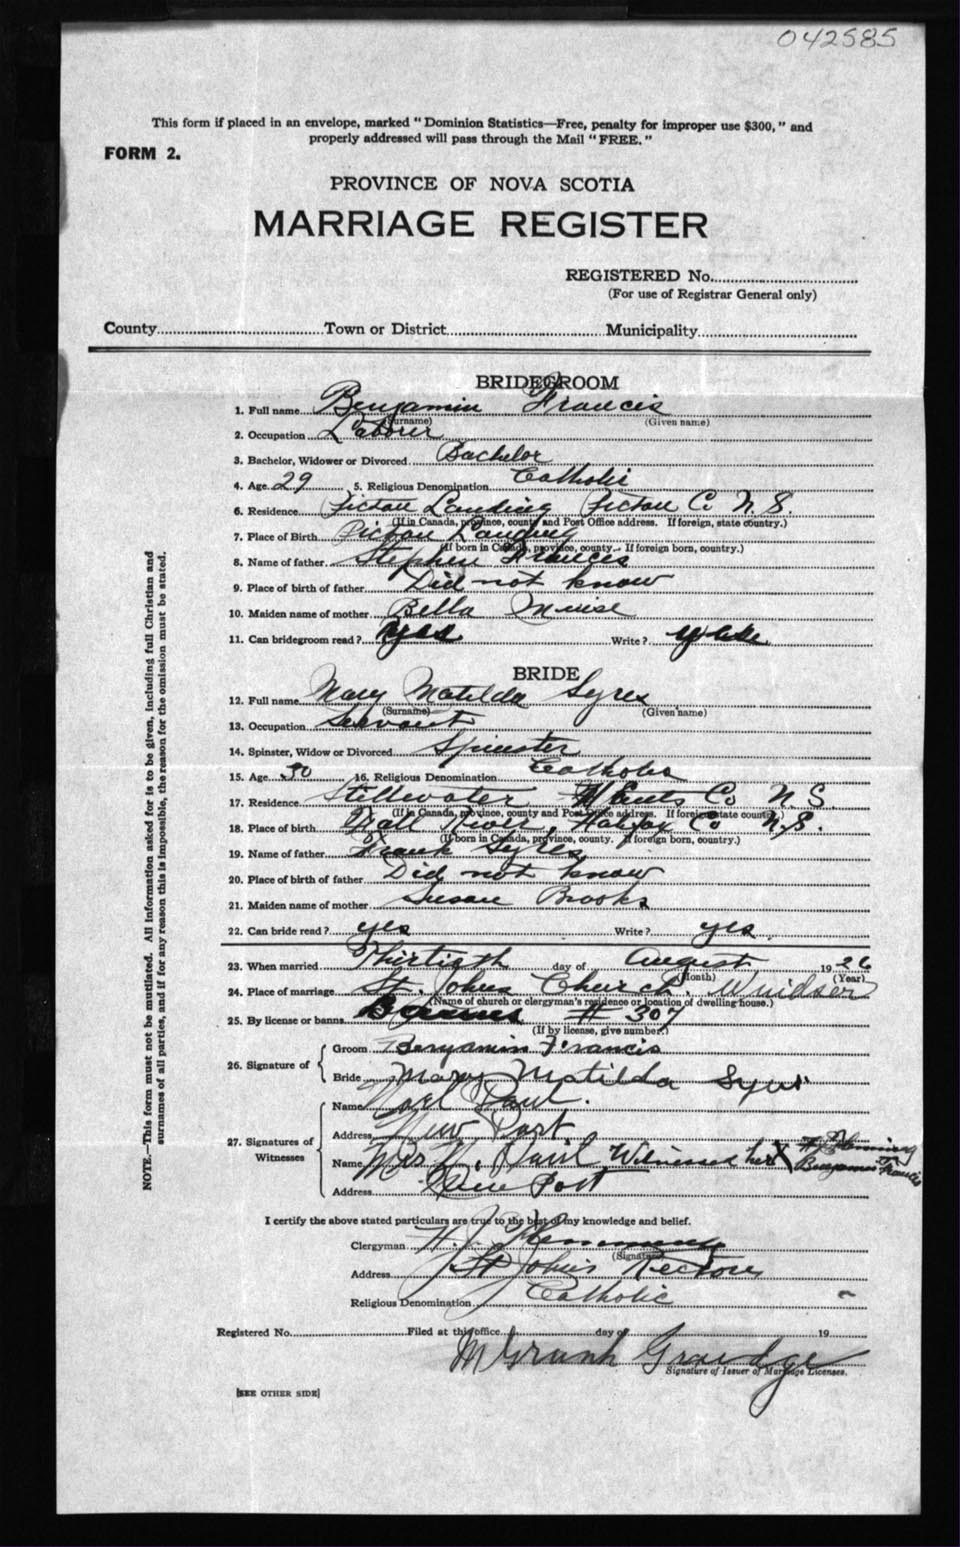 042585
This form if placed in an envelope, marked " Dominion Statistics—Free, penalty for improper use $300, " and
properly addressed will pass through the Mail " FREE. "
FORM 2.
PROVINCE OF NOVA SCOTIA
MARRIAGE REGISTER
REGISTERED No.
(For use of Registrar General only)
County Town or District Municipality
BRIDEGROOM
1. Full name Benjamin Francis
(Surname) (Given name)
2. Occupation Laborer
3. Bachelor, Widower or Divorced Bachelor
4. Age 29 5. Religious Denomination Catholic
6. Residence Pictou Landing Pictou Co N.S.
(If in Canada, province, county and Post Office address. If foreign, state country.)
7. Place of Birth Pictou Landing
(If born in Canada, province, county. If foreign born, country.)
8. Name of father Stephen Francis
9. Place of birth of father Did not know
10. Maiden name of mother Bella Muise
11. Can bridegroom read? yes Write? yes
BRIDE
12. Full name Mary Matilda Syres
(Surname) (Given name)
13. Occupation Servant
14. Spinster, Widow or Divorced Spinster
15. Age 30 16. Religious Denomination Catholic
17. Residence Stillwater Hants Co N.S.
(If in Canada, province, county and Post Office address. If foreign state country.)
18. Place of birth River, Halifax Co N.S.
(If born in Canada, province, county. If foreign born, country.)
19. Name of father Frank Syres
20. Place of birth of father Did not know
21. Maiden name of mother Susan Brooks
22. Can bride read? yes Write? yes
23. When married Thirtieth day of August 1926
(Month) (Year)
24. Place of marriage St. Johns Church. Windsor
(Name of church or clergyman's residence or location of dwelling house.)
25. By license or banns Banns # 307
(If by license, give number.)
26. Signature of
Groom Benjamin Francis
Bride Mary Matilda Syres
27. Signatures of Witnesses
Name Noel Paul.
Address New Port
Name Mrs N. Paul Witnessed her X Benjamin Francis
Address New Port
I certify the above stated particulars are true to the best of my knowledge and belief.
Clergyman H. J.
(Signature)
Address St Johns Rectory
Religious Denomination Catholic
Registered No. Filed at this office day of 19
Signature of Issuer of Marriage Licenses.
[SEE OTHER SIDE]
NOTE.—This form must not be mutilated. All information asked for is to be given, including full Christian and
surnames of all parties, and if for any reason this is impossible, the reason for the omission must be stated.